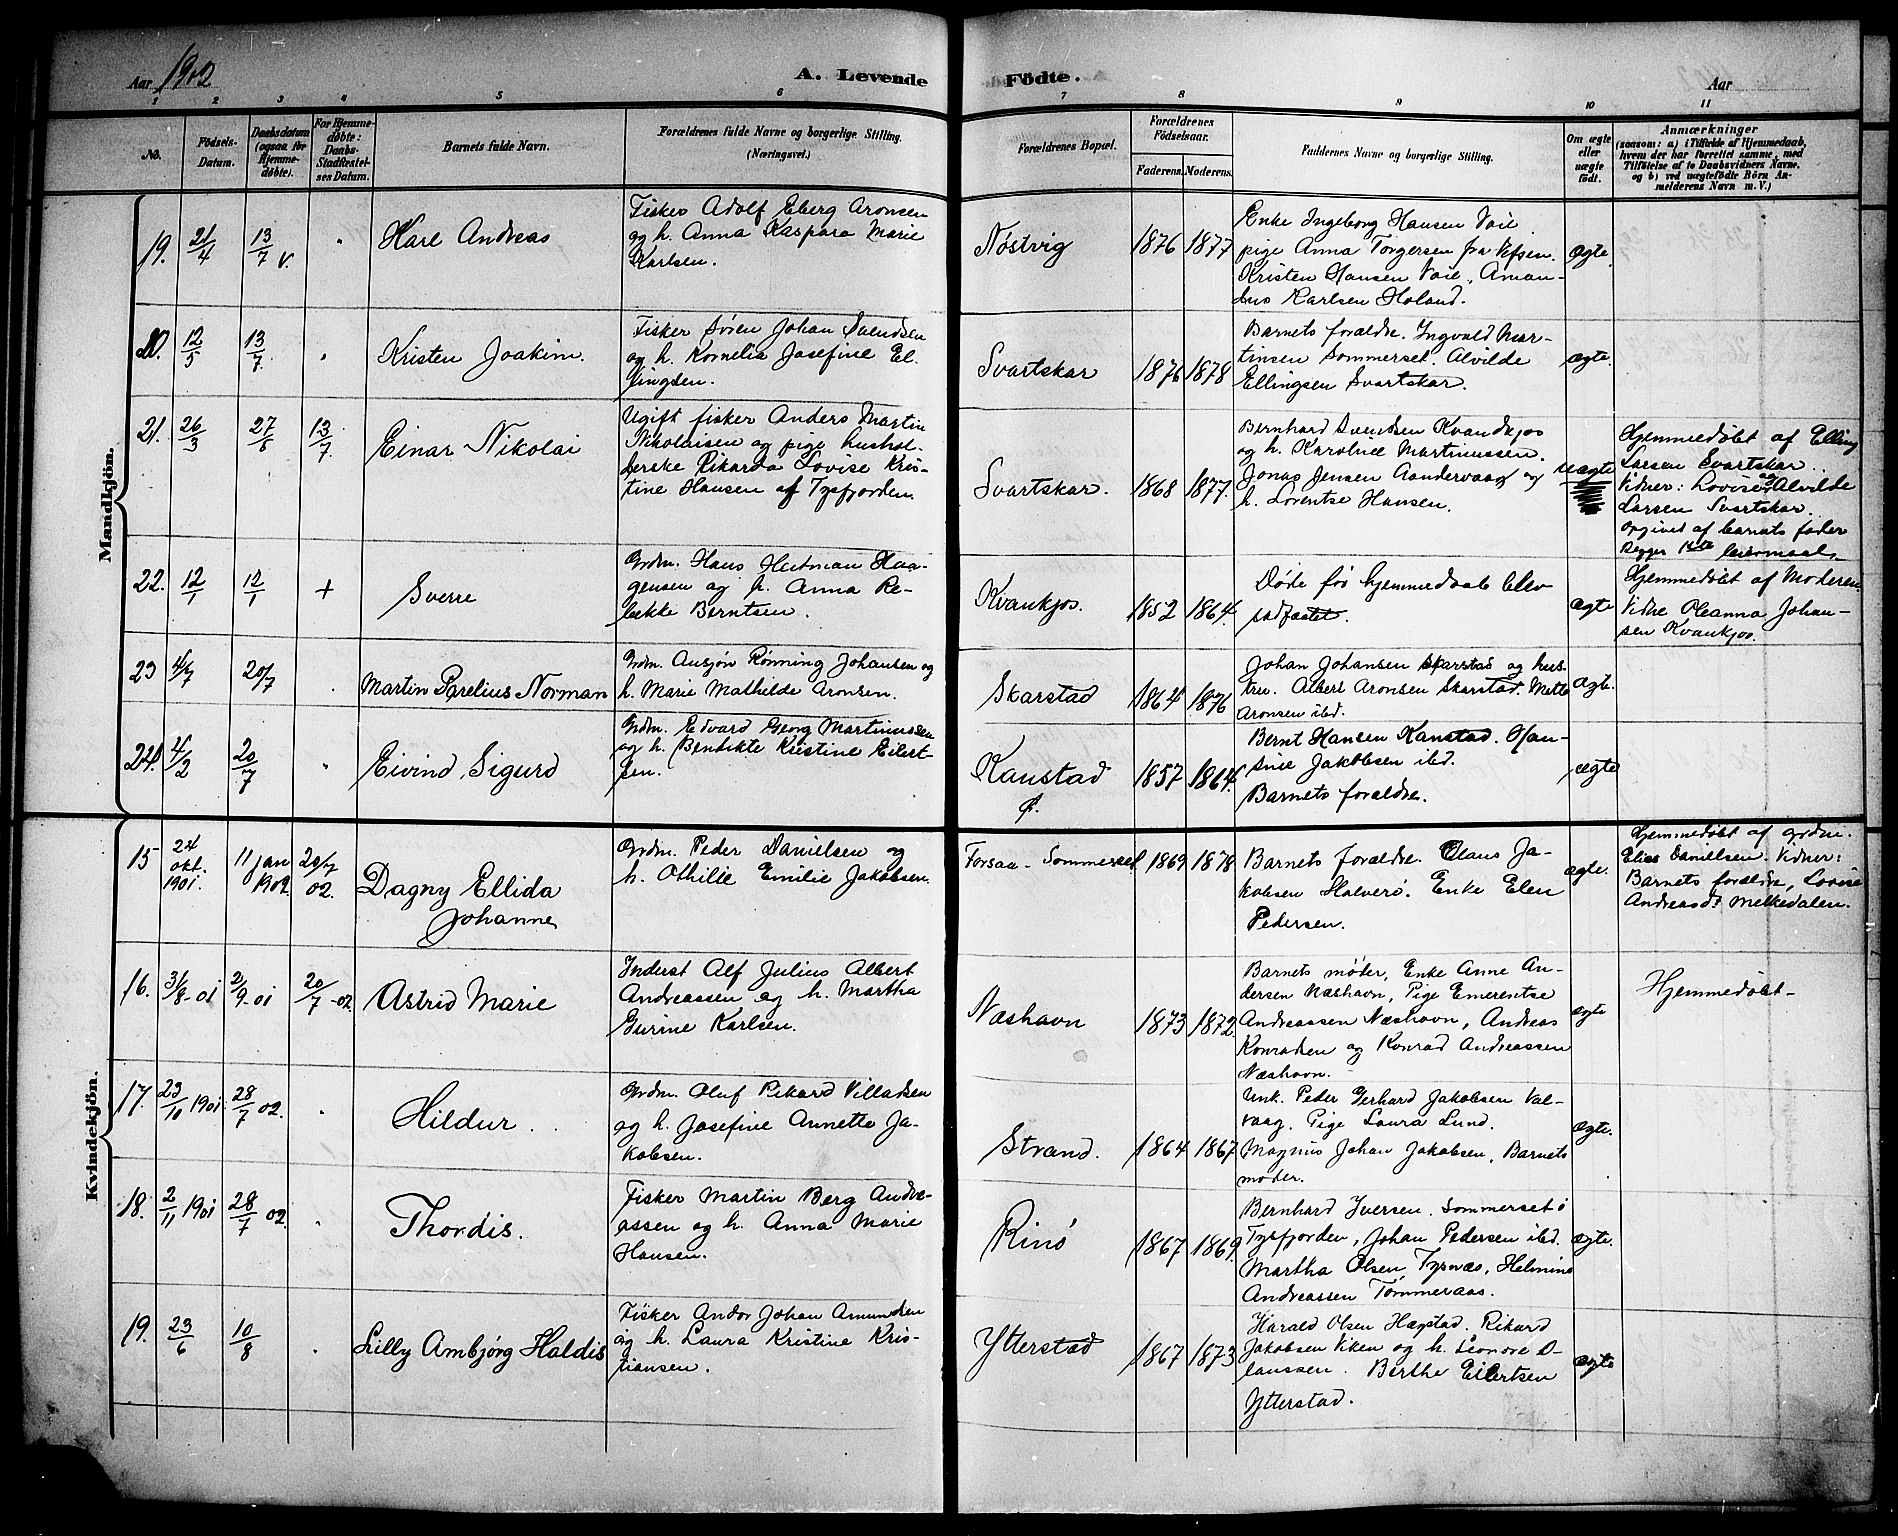 Aar 1902
A. Levende Födte.
Aar
1 2 3 4 5 6 7 8 9 10 11
No.
Födsels-Datum.
Daabsdatum (ogsaa for Hjemme-døbte).
For Hjemme-døbte: Daabs-Stadfæstel-ses Datum.
Barnets fulde Navn.
Forældrenes fulde Navne og borgerlige Stilling.
(Næringsvei.)
Forældrenes Bopæl.
Forældrenes Födselsaar.
Faderens. Moderens.
Faddernes Navne og borgerlige Stilling.
Om ægte eller uægte födt.
Anmærkninger
(saasom: a) i Tilfælde af Hjemmedaab,
hvem der har forrettet samme, med
Tilföielse af to Daabsvidners Navne.
og b) ved uægtefödte Börn An-
melderens Navn m. V.)
Mandkjön.
19. 21/4 13/7 v. "
Karl Andreas
Fisker Adolf Eberg Aronsen
og h. Anna Kaspara Marie
Karlsen.
Nøstvig
1876 1877
Enke Ingeborg Hansen Vaie.
pige Anna Torgersen fra Vefsen.
Kristen Hansen Vaie, Aman-
dus Karlsen Holand.
ægte
20. 12/5 13/7. "
Kristen Joakim.
Fisker Søren Johan Svendsen
og h. Kornelia Josefine El-
lingsen.
Svartskar
1876 1878
Barnets forældre. Ingvald Mar-
tinsen Sommerset. Alvilde
Ellingsen Svartskar.
ægte.
21. 26/3 27/6 13/7.
Einar Nikolai
Ugift fisker Anders Martin
Nikolaisen og pige hushol-
derske Rikarda Lovise Kris-
tine Hansen af Tysfjorden.
Svartskar.
1868 1877.
Bernhard Svendsen Kvandkjos
og h. Karoline Martinussen.
Jonas Jensen Aandervaag og
h. Lorentse Hansen.
uægte
Hjemmedøbt af Elling
Larsen Svartskar.
Vidner: Lovise og Alvilde
Larsen Svartskar.
opgivet af barnets fader
begges 1ste leiermaal.
22. 12/1 12/1 +
Sverre
Grdm. Hans Heitman Haa-
gensen og h. Anna Re-
bekke Berntsen.
Kvankjos.
1852 1864.
Døde før hjemmedaab blev
stadfæstet.
ægte
Hjemmedøbt af Moderen.
Vidne Oleanna Johan-
sen Kvankjos.
23 4/7 20/7 "
Martin Parelius Norman
Grdm. Ansjøn Rønning Johansen og
h. Marie Mathilde Aronsen.
Skarstad
1864 1876
Johan Johansen Skarstad og hus-
tru. Albert Aronsen Skarstad. Mette
Aronsen ibd.
ægte.
24. 4/2 20/7 "
Eivind Sigurd
Grdm. Edvard Georg Martinussen
og h. Bendikte Kristine Eilert-
sen.
Kanstad
1857 1864
Bernt Hansen Kanstad. Han-
sine Jakobsen ibd.
Barnets forældre.
ægte
Kvindekjön.
15 24 okt. 1901. 11 jan 1902. 20/7 02.
Dagny Ellida
Johanne
Grdm. Peder Danielsen og
h. Othilie Emilie Jakobsen.
Forsaa - Sommerset
1869 1878
Barnets forældre. Claus Ja-
kobsen Halverø. Enke Elen
Pedersen.
ægte.
Hjemmedøbt af grdm.
Elias Danielsen. Vidner:
Barnets forældre, Lovise
Andreasdt Melkedalen.
16. 31/8-01 2/9-01 20/7-02.
Astrid Marie
Inderst Alf Julius Albert
Andreassen og h. Martha
Gurine Karlsen.
Næshavn
1873 1872.
Barnets møder, Enke Anne An-
dersen Næshavn, Pige Emerentse
Andreassen Næshavn, Andreas
Konradsen og Konrad Andreassen
Næshavn.
ægte
Hjemmedøbt-
17. 23/10 1901. 28/7 02. "
Hildur.
Grdm. Oluf Rikard Villadsen
og h. Josefine Annette Ja-
kobsen.
Strand.
1864 1867
Unk. Peder Gerhard Jakobsen Val-
vaag. Pige Laura Lund.
Magnus Johan Jakobsen. Barnets
moder.
ægte.
18. 2/11 1901 28/7 02. "
Thordis.
Fisker Martin Berg Andre-
assen og h. Anna Marie
Hansen.
Rinø
1867 1869
Bernhard Iversen. Sommerset i
Tysfjorden, Johan Pedersen ibd.
Martha Olsen Tysnæs, Helmine
Andreassen Tømmeraas.
ægte.
19. 23/6 10/8 "
Lilly Ambjørg Haldis
Fisker Andor Johan Amundsen
og h. Laura Kristine Kris-
tiansen.
Ytterstad
1867 1873
Harald Olsen Hægstad. Rikard
Jakobsen Viken og h. Leonore O-
laussen. Berthe Eilertsen
Ytterstad.
ægte